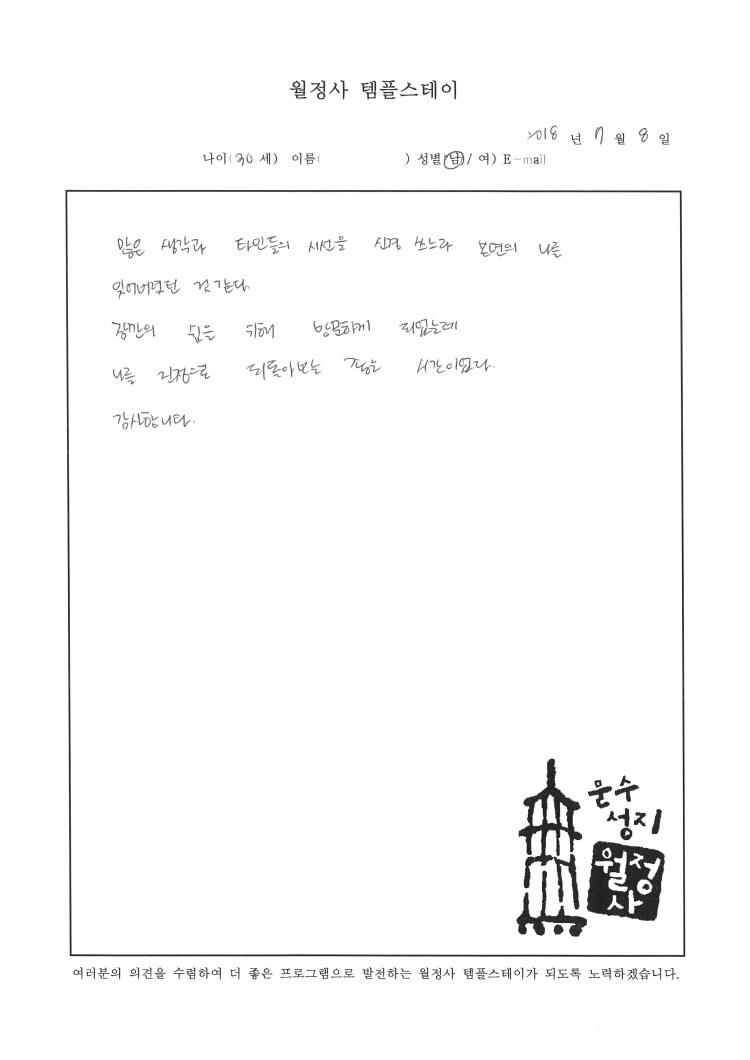 월정사 템플스테이
2018 년 7 월 8 일
나이(30 세) 이름( ) 성별(남/ 여) E-mail
많은 생각과 타인들의 시선을 신경 쓰느라 본연의 나를
잊어버렸던 것 같다.
잠깐의 쉼을 위해 방문하게 되었는데
나를 진정으로 되돌아보는 좋은 시간이었다.
감사합니다.
문수
성지
월정
사
여러분의 의견을 수렴하여 더 좋은 프로그램으로 발전하는 월정사 템플스테이가 되도록 노력하겠습니다.